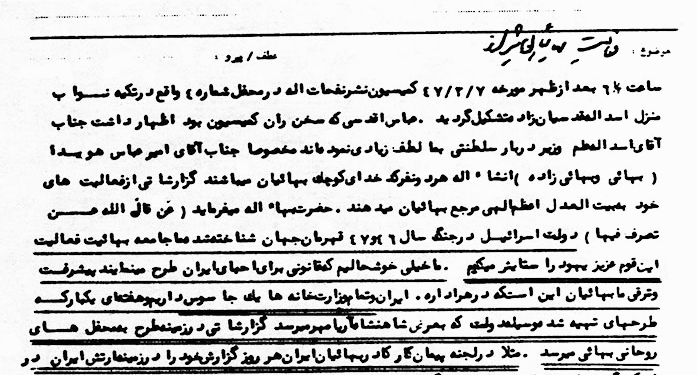 موضوع : فعالیت بهائیان شیراز
عطف / پیرو :
ساعت ۶½ بعد از ظهر مورخه ۴۷/۲/۷ کمیسیون نشر نفحات اله در محفل شماره ۴ واقع در تکیه نواب
منزل اسداله قدسیان زاد متشکل گردید . عباس اقدسی که سخن ران کمیسیون بود اظهار داشت جناب
آقای اسداله علم وزیر دربار سلطنتی بما لطف زیادی نموده اند مخصوصا جناب آقای امیر عباس هویدا
( بهائی و بهائی زاده ) انشاء اله هر دو نفر کدخدای کوچک بهائیان میباشند گزارشاتی از فعالیت های
خود به بیت العدل اعظم الهی مرجع بهائیان میدهند . حضرت بهاء اله میفرماید (
تصرف فیها ) دولت اسرائیل در جنگ سال ۴۶ و ۴۷ قهرمان جهان شناخته شد ما جامعه بهائیت فعالیت
این قوم عزیز یهود را ستایش میکنیم . ما خیلی خوشحالیم که قانونی برای احیای ایران طرح مینمایند پیشرفت
و ترقی ما بهائیان این است که در هر اداره . ایران و تمام وزارتخانه ها یک جاسوس داریم و هفته ای یکبار که
طرحهای تهیه شده بوسیله دولت که بعرض شاهنشاه آریامهر میرسد گزارشاتی در زمینه طرح به محفل های
روحانی بهائی میرسد . مثلا در لجنه پیمان کار کادر بهائیان ایران هر روز گزارش خود را در زمینه ارتش ایران در